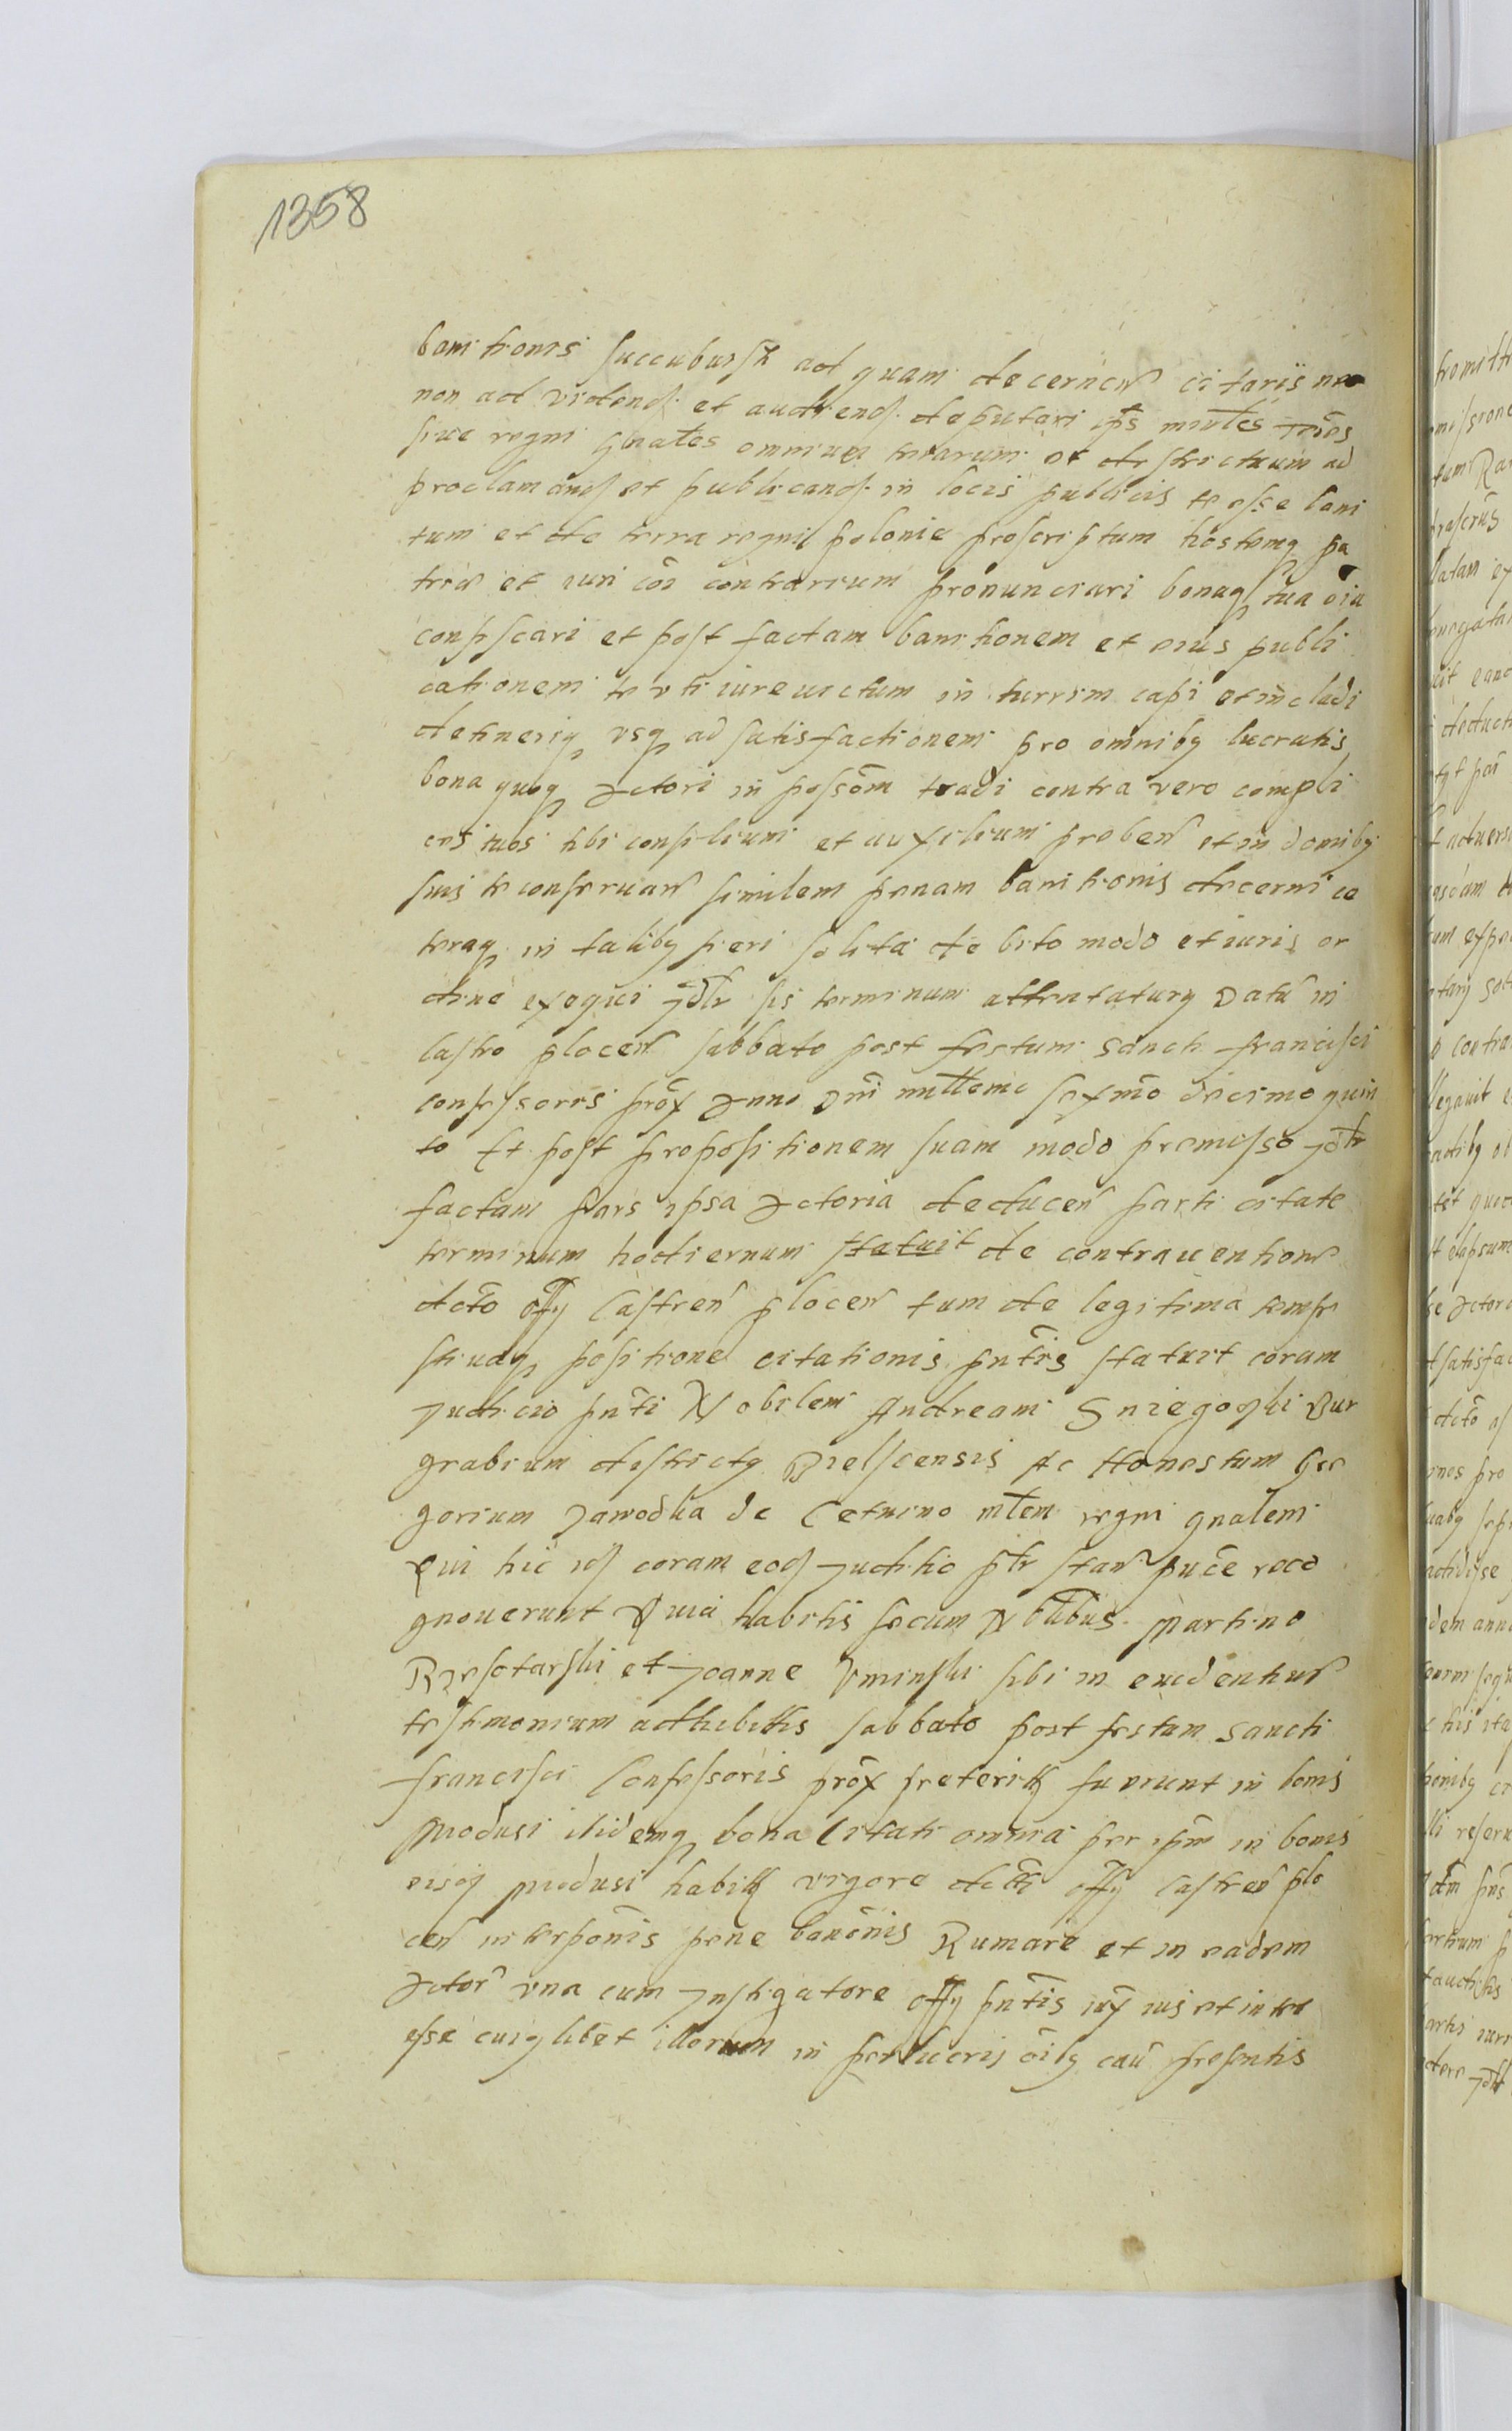 1358
banitionis succubuisse ad quam decernen citariis nec
non ad vidend et audiend deputari ipos mintles
siue regni gnales omnium terrarum et districtuum ad
proclamand et publicand in locis publicis te esse bani
tum et de terra regni polonie proscriptum hostemq pa
trie et iuri coi contrarium pronunciari bonaq tua oia
confiscari et post factam banitionem et eius publi
cationem te vti iureuictum in turrim capi et includi
detineriq vsq ad satisfactionem pro omnibq lucratis
bona quoq Actori in possom tradi contra vero compli
ces tuos tibi consilium et auxilium preben et in domibq
suis te conseruan similem penam banitionis decerni ce
teraq in talibq fieri solita debito modo et iuris or
dine exequi Jdlr sis terminum attentaturq Datu in
Castro plocen sabbato post festum Sancti francisci
confessoris prox Anno Dni millemo sexmo decimo quin
to Et post propositionem suam modo premisso Jdlr
factam pars ipsa Actoria deducen parti citate
terminum hodiernum statuit de contrauentione
dcto offy Castren plocen tum de legitima tempe
stiuaq positione citationis pntis statuit coram
Judicio pnti Nobilem Andream Sniegoczki Bur
grabium districtq Bielscensis Ac Honestum Gre
gorium Zawodka de Cetnino mlem regni gnalem
Qui hic id coram eod Juditio plr stan puce reco
gnouerunt Quia habitis secum Nblibus Martino
Rzesotarski et Joanne Uminski sibi in euidentius
testimonium adhibitis sabbato post festum Sancti
francisci Confessoris prox preteritq fuerunt in bonis
Modusi ibidemq bona Citati omnia per ipm in bonis
eisd Modusi habitq vigore dcti offy Castren plo
cen interponis pene banonis Rumare et in eadem
Actor vna cum Instigatore offy pntis iuxq ius et inter
esse cuiqlibet illorum in perlucris oibq cau presentis